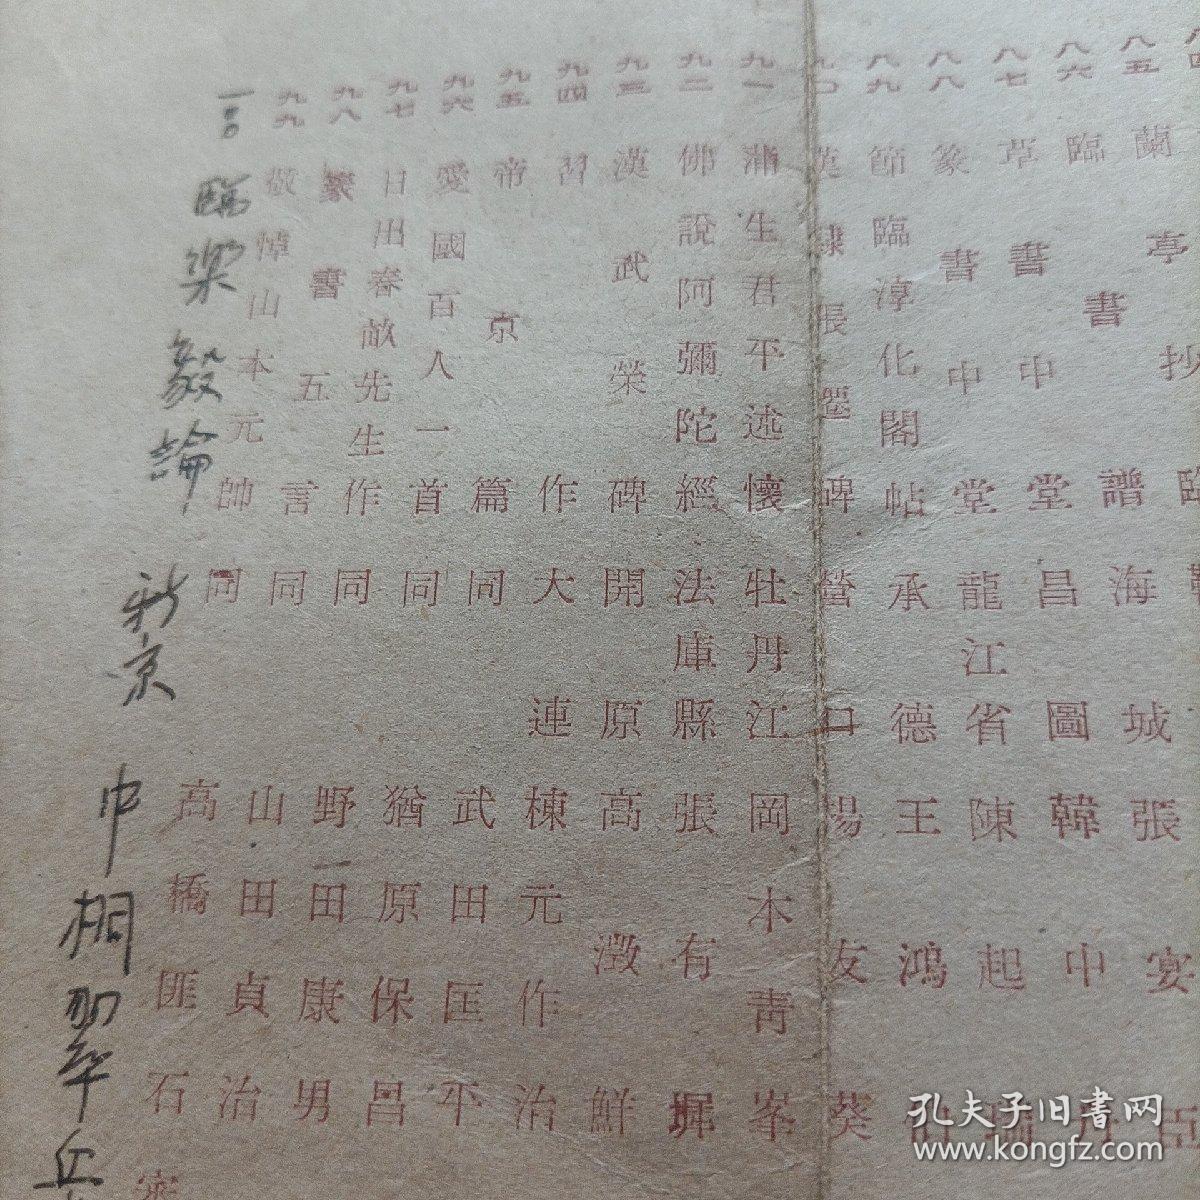 八四
八五 蘭亭抄臨
八六 臨書譜 海城 張宴臣
八七 草書中堂 昌圖 韓中
八八 篆書中堂 龍江省 陳起
八九 節臨淳化閣帖 承德 王鴻
九〇 漢隸張遷碑 營口 楊友葵
九一 蒲生君平述懷 牡丹江 岡本青峯
九二 佛說阿彌陀經 法庫縣 張有墀
九三 漢武榮碑 開原 高澂鮮
九四 習作 大連 棟元作治
九五 帝京篇 同 武田匡平
九六 愛國百人一首 同 猶原保昌
九七 日出春畝先生作 同 野田康男
九八 篆書五言 同 山田貞治
九九 敬悼山本元帥 同 高橋匪石
一〇〇 臨樂毅論 新京
孔夫子旧书网
www.kongfz.com